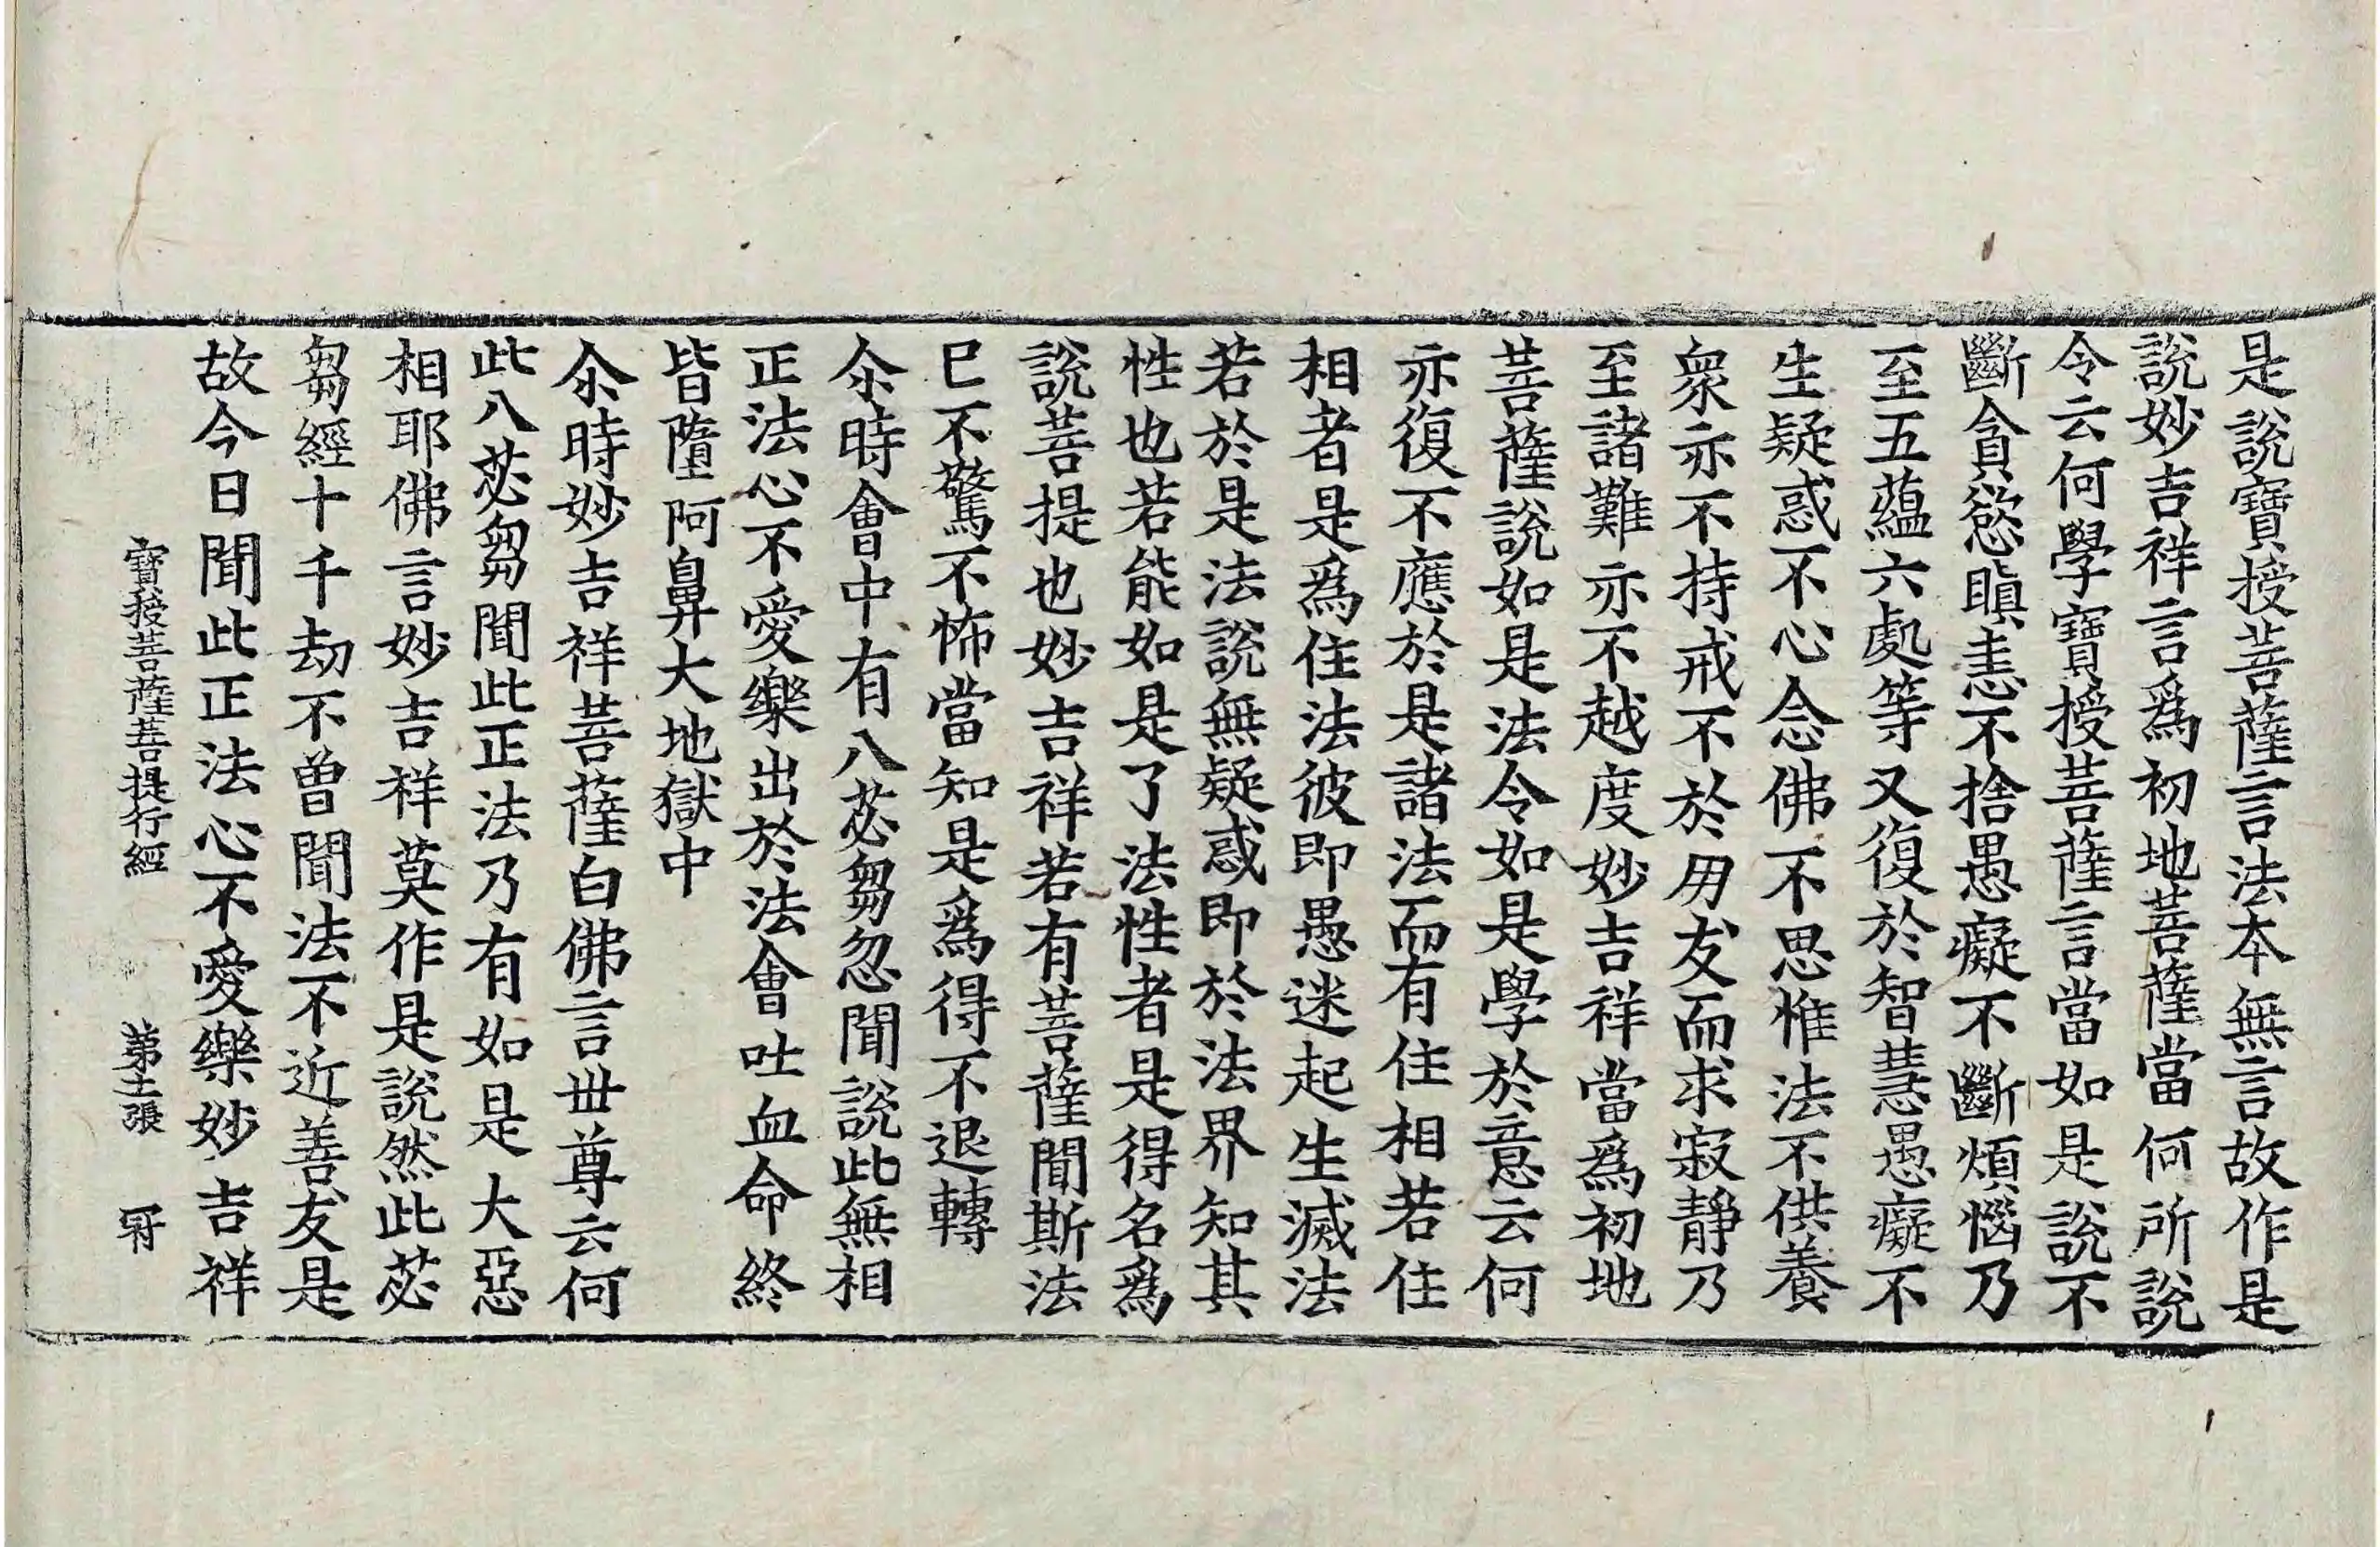 是說寶授菩薩言法本無言故作是
說妙吉祥言爲初地菩薩當何所說
令云何學寶授菩薩言當如是說不
斷貪慾瞋恚不捨愚癡不斷煩惱乃
至五蘊六處等又復於智慧愚癡不
生疑惑不心念佛不思惟法不供養
衆亦不持戒不於朋友而求寂靜乃
至諸難亦不越度妙吉祥當爲初地
菩薩說如是法令如是學於意云何
亦復不應於是諸法而有住相若住
相者是爲住法彼即愚迷起生滅法
若於是法說無疑惑即於法界知其
性也若能如是了法性者是得名爲
說菩提也妙吉祥若有菩薩聞斯法
已不驚不怖當知是爲得不退轉
尒時會中有八苾芻忽聞說此無相
正法心不愛樂出於法會吐血命終
皆墮阿鼻大地獄中
尒時妙吉祥菩薩白佛言世尊云何
此八苾芻聞此正法乃有如是大惡
相耶佛言妙吉祥莫作是說然此苾
芻經十千劫不曾聞法不近善友是
故今日聞此正法心不愛樂妙吉祥
寶授菩薩菩提行經 第十二張 冠